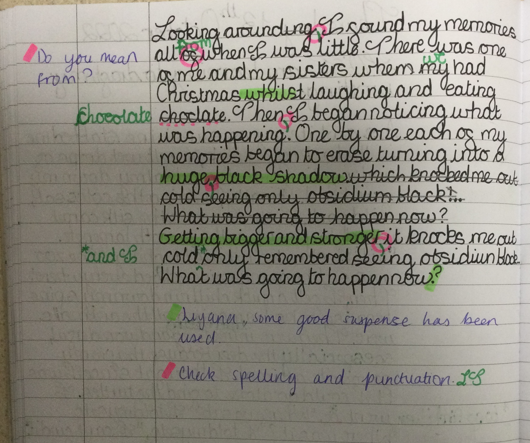 Looking arounding I sound my memories
from
Do you mean from?
all of when I was little. There was one
we
of me and my sisters whem my had
Christmas whilst laughing and eating
chocolate
choclate. Then I began noticing what
was happening. One by one each of my
memories began to erase turning into a
huge black shadow which knocked me out
cold seeing only obsidium black!...
What was going to happen now?
Getting bigger and stronger, it knocks me out
*and I
cold* only remembered seeing obsidiun black.
What was going to happen now?
Liyana, some good suspense has been
used.
Check spelling and punctuation.